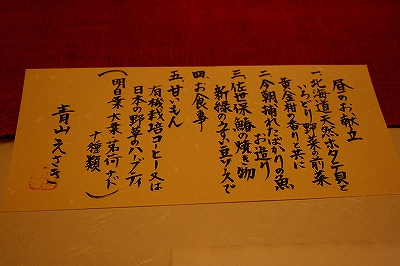 昼のお献立
一、北海道天然ホタテ貝と
いろどり野菜の前菜
黄金柑の香りと共に
二、今朝捕れたばかりの魚
お造り
三、佐世保 鰆の焼き物
新緑のうすい豆ソースで
四、お食事
五、甘いもん
有機栽培コーヒー又は
日本の野草のハーブティ
(明日葉 大葉 薄荷 ナド
十種類)
青山 えさき